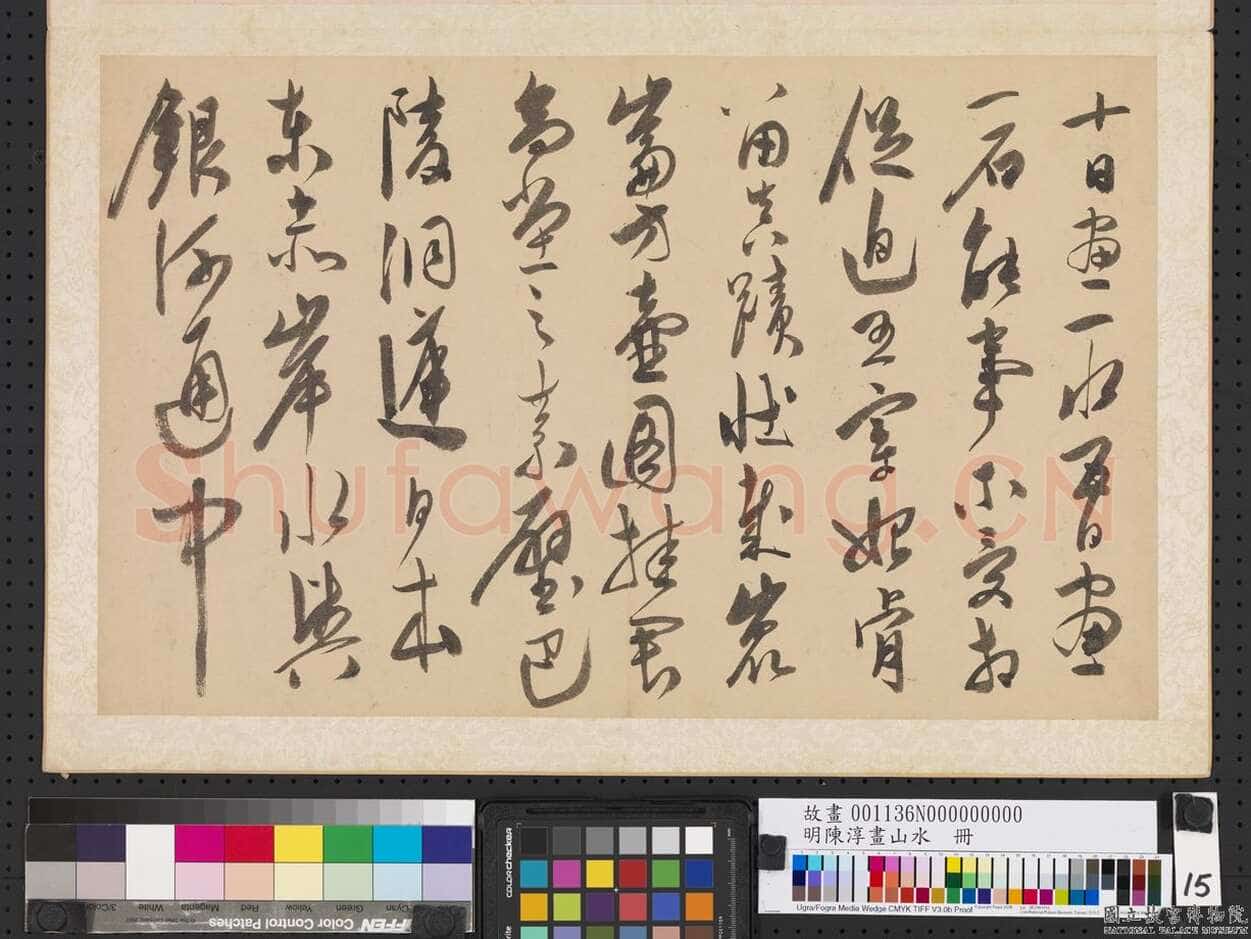 十日畫一水五日畫
一石能事不受相
促迫王宰始肯
留真蹟壯哉崑
崙方壺圖挂君
高堂之素壁巴
陵洞庭日本
東赤岸水與
銀河通中
Shufawang.CN
故畫 001136N000000000
明陳淳畫山水 冊
Ugra/Fogra Media Wedge CMYK TIFF V3.0b Proof
15
國立故宮博物院
NATIONAL PALACE MUSEUM
colorchecker
3/Color Black White Magenta Red Yellow Green Cyan Blue
TIFFEN Color Control Patches